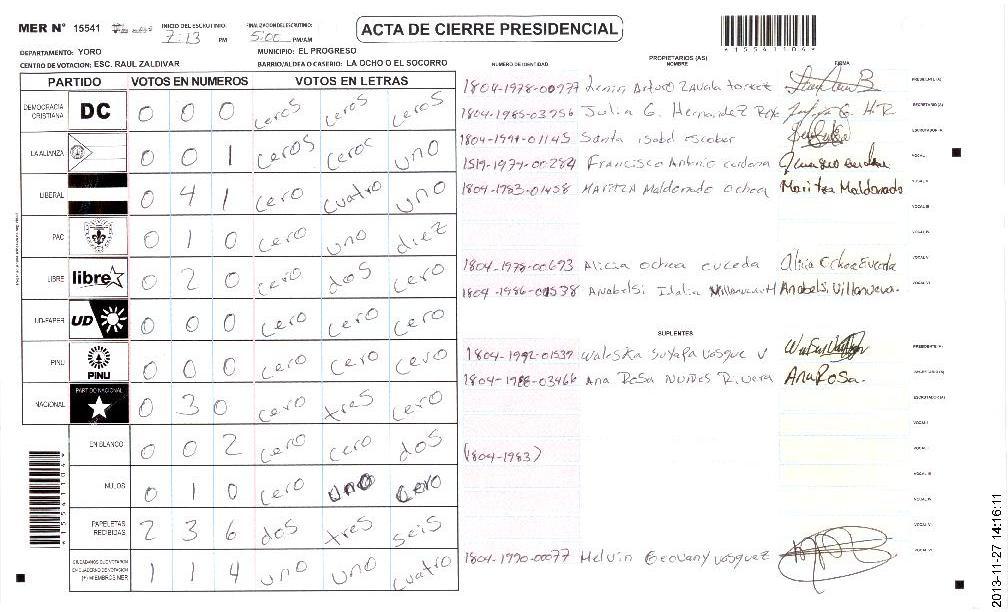 MER N° 15541
INICIO DEL ESCRUTINIO: 7:13 PM
FINALIZACION DEL ESCRUTINIO: 5:00 PM/AM
ACTA DE CIERRE PRESIDENCIAL
DEPARTAMENTO: YORO
MUNICIPIO: EL PROGRESO
CENTRO DE VOTACION: ESC. RAUL ZALDIVAR
BARRIO/ALDEA O CASERIO: LA OCHO O EL SOCORRO
*15541104*
PARTIDO VOTOS EN NUMEROS VOTOS EN LETRAS
DEMOCRACIA CRISTIANA DC 0 0 0 ceros ceros ceros
LA ALIANZA 0 0 1 ceros ceroc uno
LIBERAL 0 4 1 cero cuatro uno
PAC 0 1 0 cero uno diez
LIBRE libre 0 2 0 cero dos cero
UD-FAPER UD 0 0 0 cero cero cero
PINU PINU 0 0 0 cero cero cero
NACIONAL PARTIDO NACIONAL 0 3 0 cero tres cero
EN BLANCO 0 0 2 cero cero dos
NULOS 0 1 0 cero uno cero
PAPELETAS RECIBIDAS 2 3 6 dos tres seis
CIUDADANOS QUE VOTARON EN CUADERNO DE VOTACION (+) MIEMBROS MER 1 1 4 uno uno cuatro
NUMERO DE IDENTIDAD
PROPIETARIOS (AS)
NOMBRE
FIRMA
1804-1978-00977 Lenin Arturo Zavala PRESIDENTE (A)
1804-1985-03756 Julia G. Hernandez G. H.R SECRETARIO (A)
1804-1991-01145 Santa isabel escobar ESCRUTADOR (A)
1519-1979-00284 Francisco Antonio cardona VOCAL I
1804-1983-01458 MARITZA Maldonado ochoa Maritza Maldonado VOCAL II
VOCAL III
VOCAL IV
1804-1978-00693 Alicia ochoa euceda Alicia Ochoa Euceda VOCAL V
1804-1986-01538 Anabelsi Idalia Villanueva Anabelsi Villanueva. VOCAL VI
SUPLENTES
1804-1992-01537 Waleska Suyapa Vasque V PRESIDENTE (A)
1804-1988-03466 Ana Rosa Nuñes Rivera Ana Rosa. SECRETARIO (A)
ESCRUTADOR (A)
VOCAL I
(1804-1983) VOCAL II
VOCAL III
VOCAL IV
VOCAL V
1804-1990-00077 Melvin Geovany vasquez VOCAL VI
*15541104*
2013-11-27 14:16:11